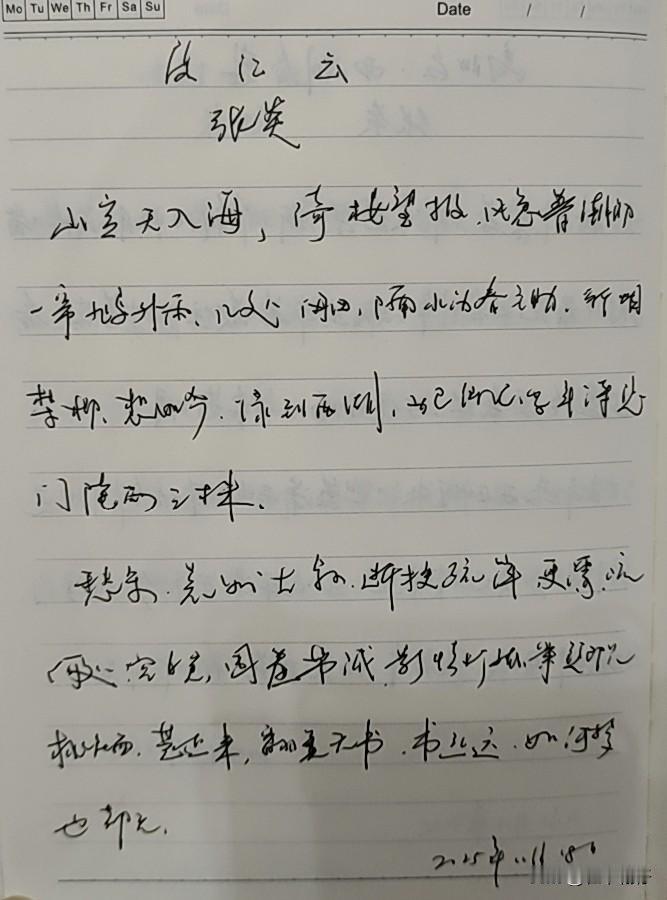 Mo Tu We Th Fr Sa Su
Date / /
渡江云
张炎
山空天入海，倚楼望极，风急暮潮初
一帘鸠外雨、几处闲田，隔水动春锄。新烟
禁柳、想如今、绿到西湖，犹记当年深隐
门掩两三株。
愁余。荒洲古溆，断梗疏萍 更漂流
何处。空自觉，围羞带减，影怯灯孤。常疑即见
桃花面。甚近来，翻无书。书纵远，如何梦
也都无。
2025年11月18日